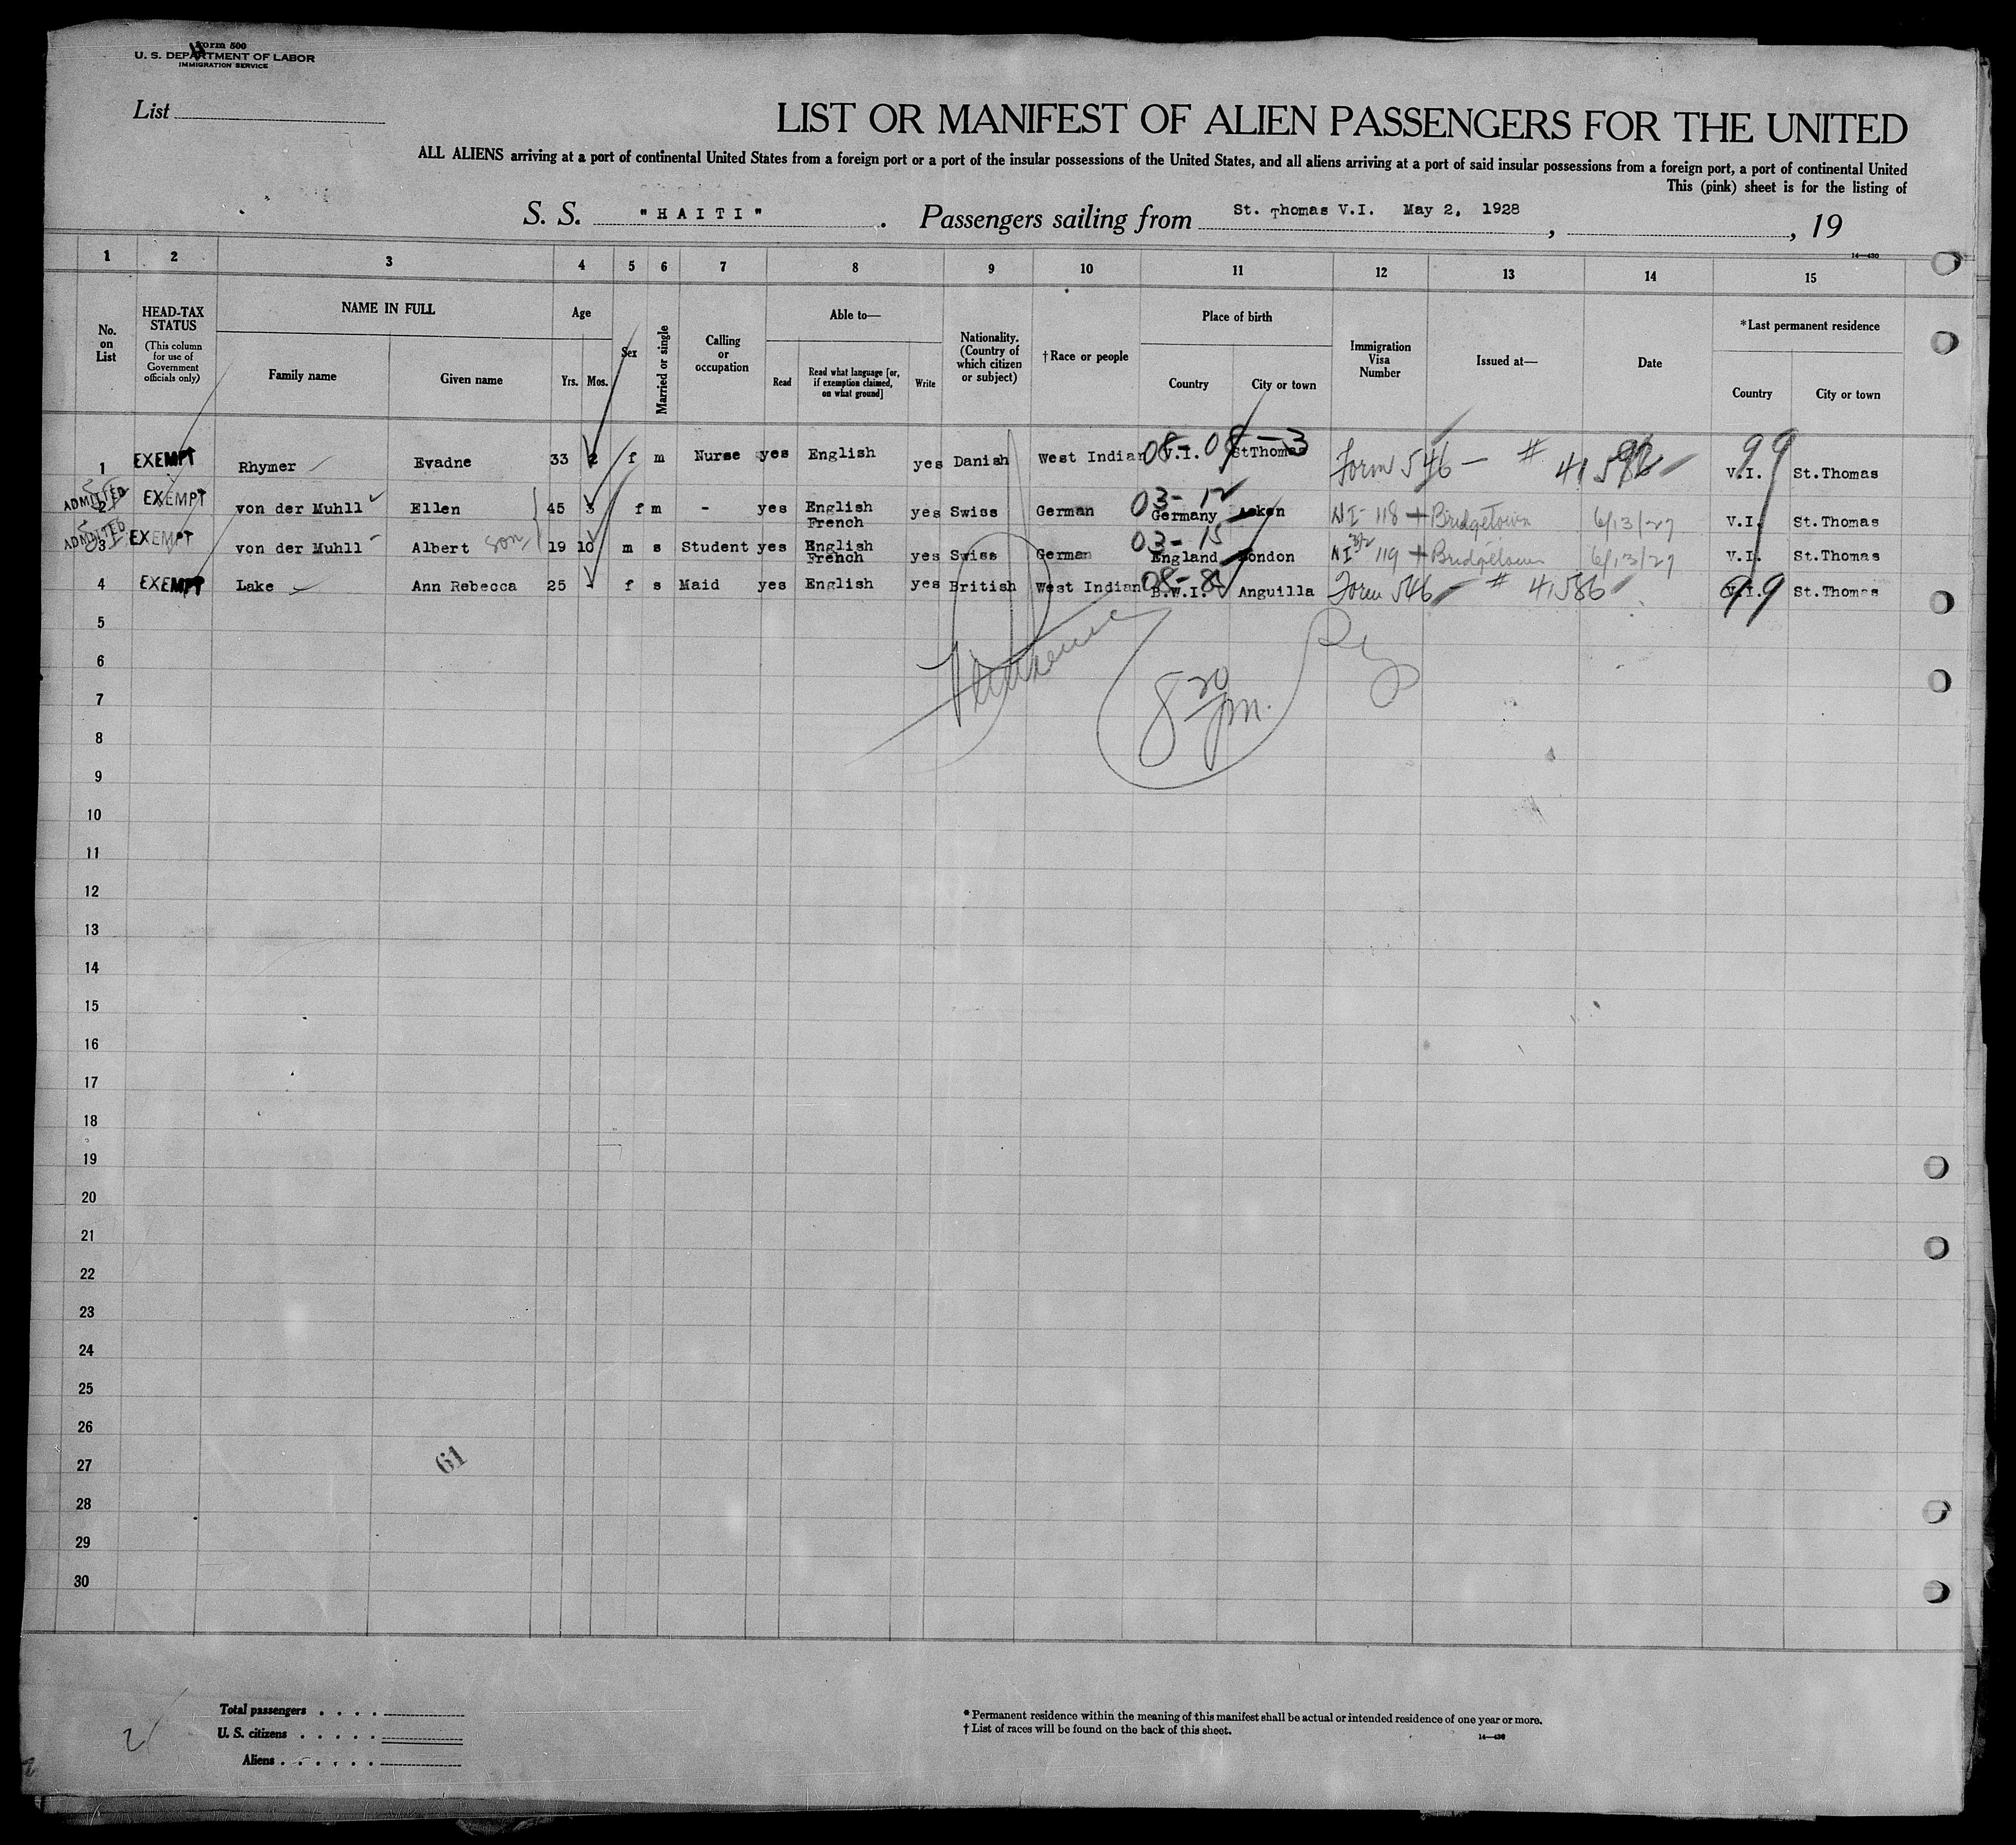 Form 500
U. S. DEPARTMENT OF LABOR
IMMIGRATION SERVICE
List
LIST OR MANIFEST OF ALIEN PASSENGERS FOR THE UNITED
ALL ALIENS arriving at a port of continental United States from a foreign port or a port of the insular possessions of the United States, and all aliens arriving at a port of said insular possessions from a foreign port, a port of continental United
This (pink) sheet is for the listing of
S. S. "HAITI" . Passengers sailing from St. Thomas V.I. May 2, 1928 , , 19
14—430
1 2 3 4 5 6 7 8 9 10 11 12 13 14 15
No. on List
HEAD-TAX STATUS (This column for use of Government officials only)
NAME IN FULL
Family name Given name
Age
Yrs. Mos.
Sex
Married or single
Calling or occupation
Able to—
Read Read what language [or, if exemption claimed, on what ground] Write
Nationality. (Country of which citizen or subject)
† Race or people
Place of birth
Country City or town
Immigration Visa Number
Issued at—
Date
*Last permanent residence
Country City or town
1 EXEMPT Rhymer Evadne 33 2 f m Nurse yes English yes Danish West Indian V.I. 08-08-3 StThomas Form 546 — # V.I. 99 St.Thomas
ADMITTED 2 EXEMPT von der Muhll Ellen 45 3 f m - yes English French yes Swiss German 03-12 Germany NI- 118 Bridgetown 6/13/27 V.I. St.Thomas
ADMITTED 3 EXEMPT von der Muhll Albert son 19 10 m s Student yes English French yes Swiss German 03-15 England London NI 119 Bridgetown 6/13/27 V.I. St.Thomas
4 EXEMPT Lake Ann Rebecca 25 - f s Maid yes English yes British West Indian 08-8 B.W.I. Anguilla Form 546 # 41586 V.I. 99 St.Thomas
5
6
7
8 20 pm.
8
9
10
11
12
13
14
15
16
17
18
19
20
21
22
23
24
25
26
27
61
28
29
30
Total passengers . . . .
U. S. citizens . . . . .
Aliens . . . . . .
2
* Permanent residence within the meaning of this manifest shall be actual or intended residence of one year or more.
† List of races will be found on the back of this sheet.
14—430